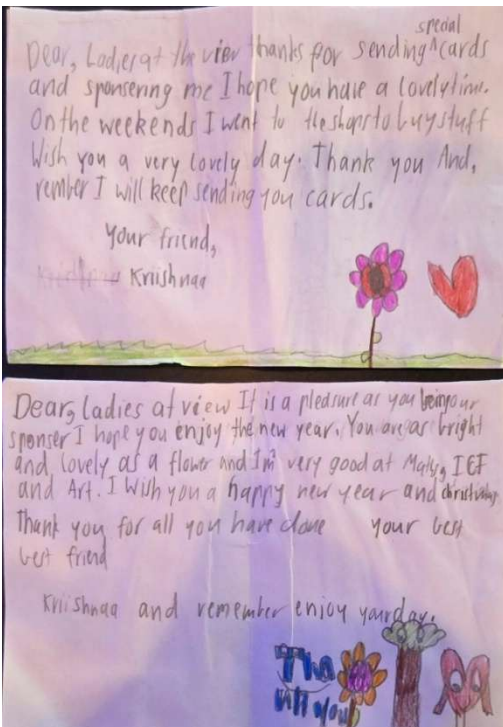 special
Dear, Ladies at the view thanks for sending ^ cards
and sponsering me I hope you have a lovely time.
On the weekends I went to the shops to buy stuff
Wish you a very lovely day. Thank you And,
rember I will keep sending you cards.
Your friend,
Kriishnaa
Dear, ladies at view It is a pleasure as you being our
sponser I hope you enjoy the new year. You are as bright
and, lovely as a flower and I'm very good at Maths, ICT
and Art. I Wish you a happy new year and
Thank you for all you have done your best
best friend
Kriishnaa and remember enjoy your day.
Tha
nk you